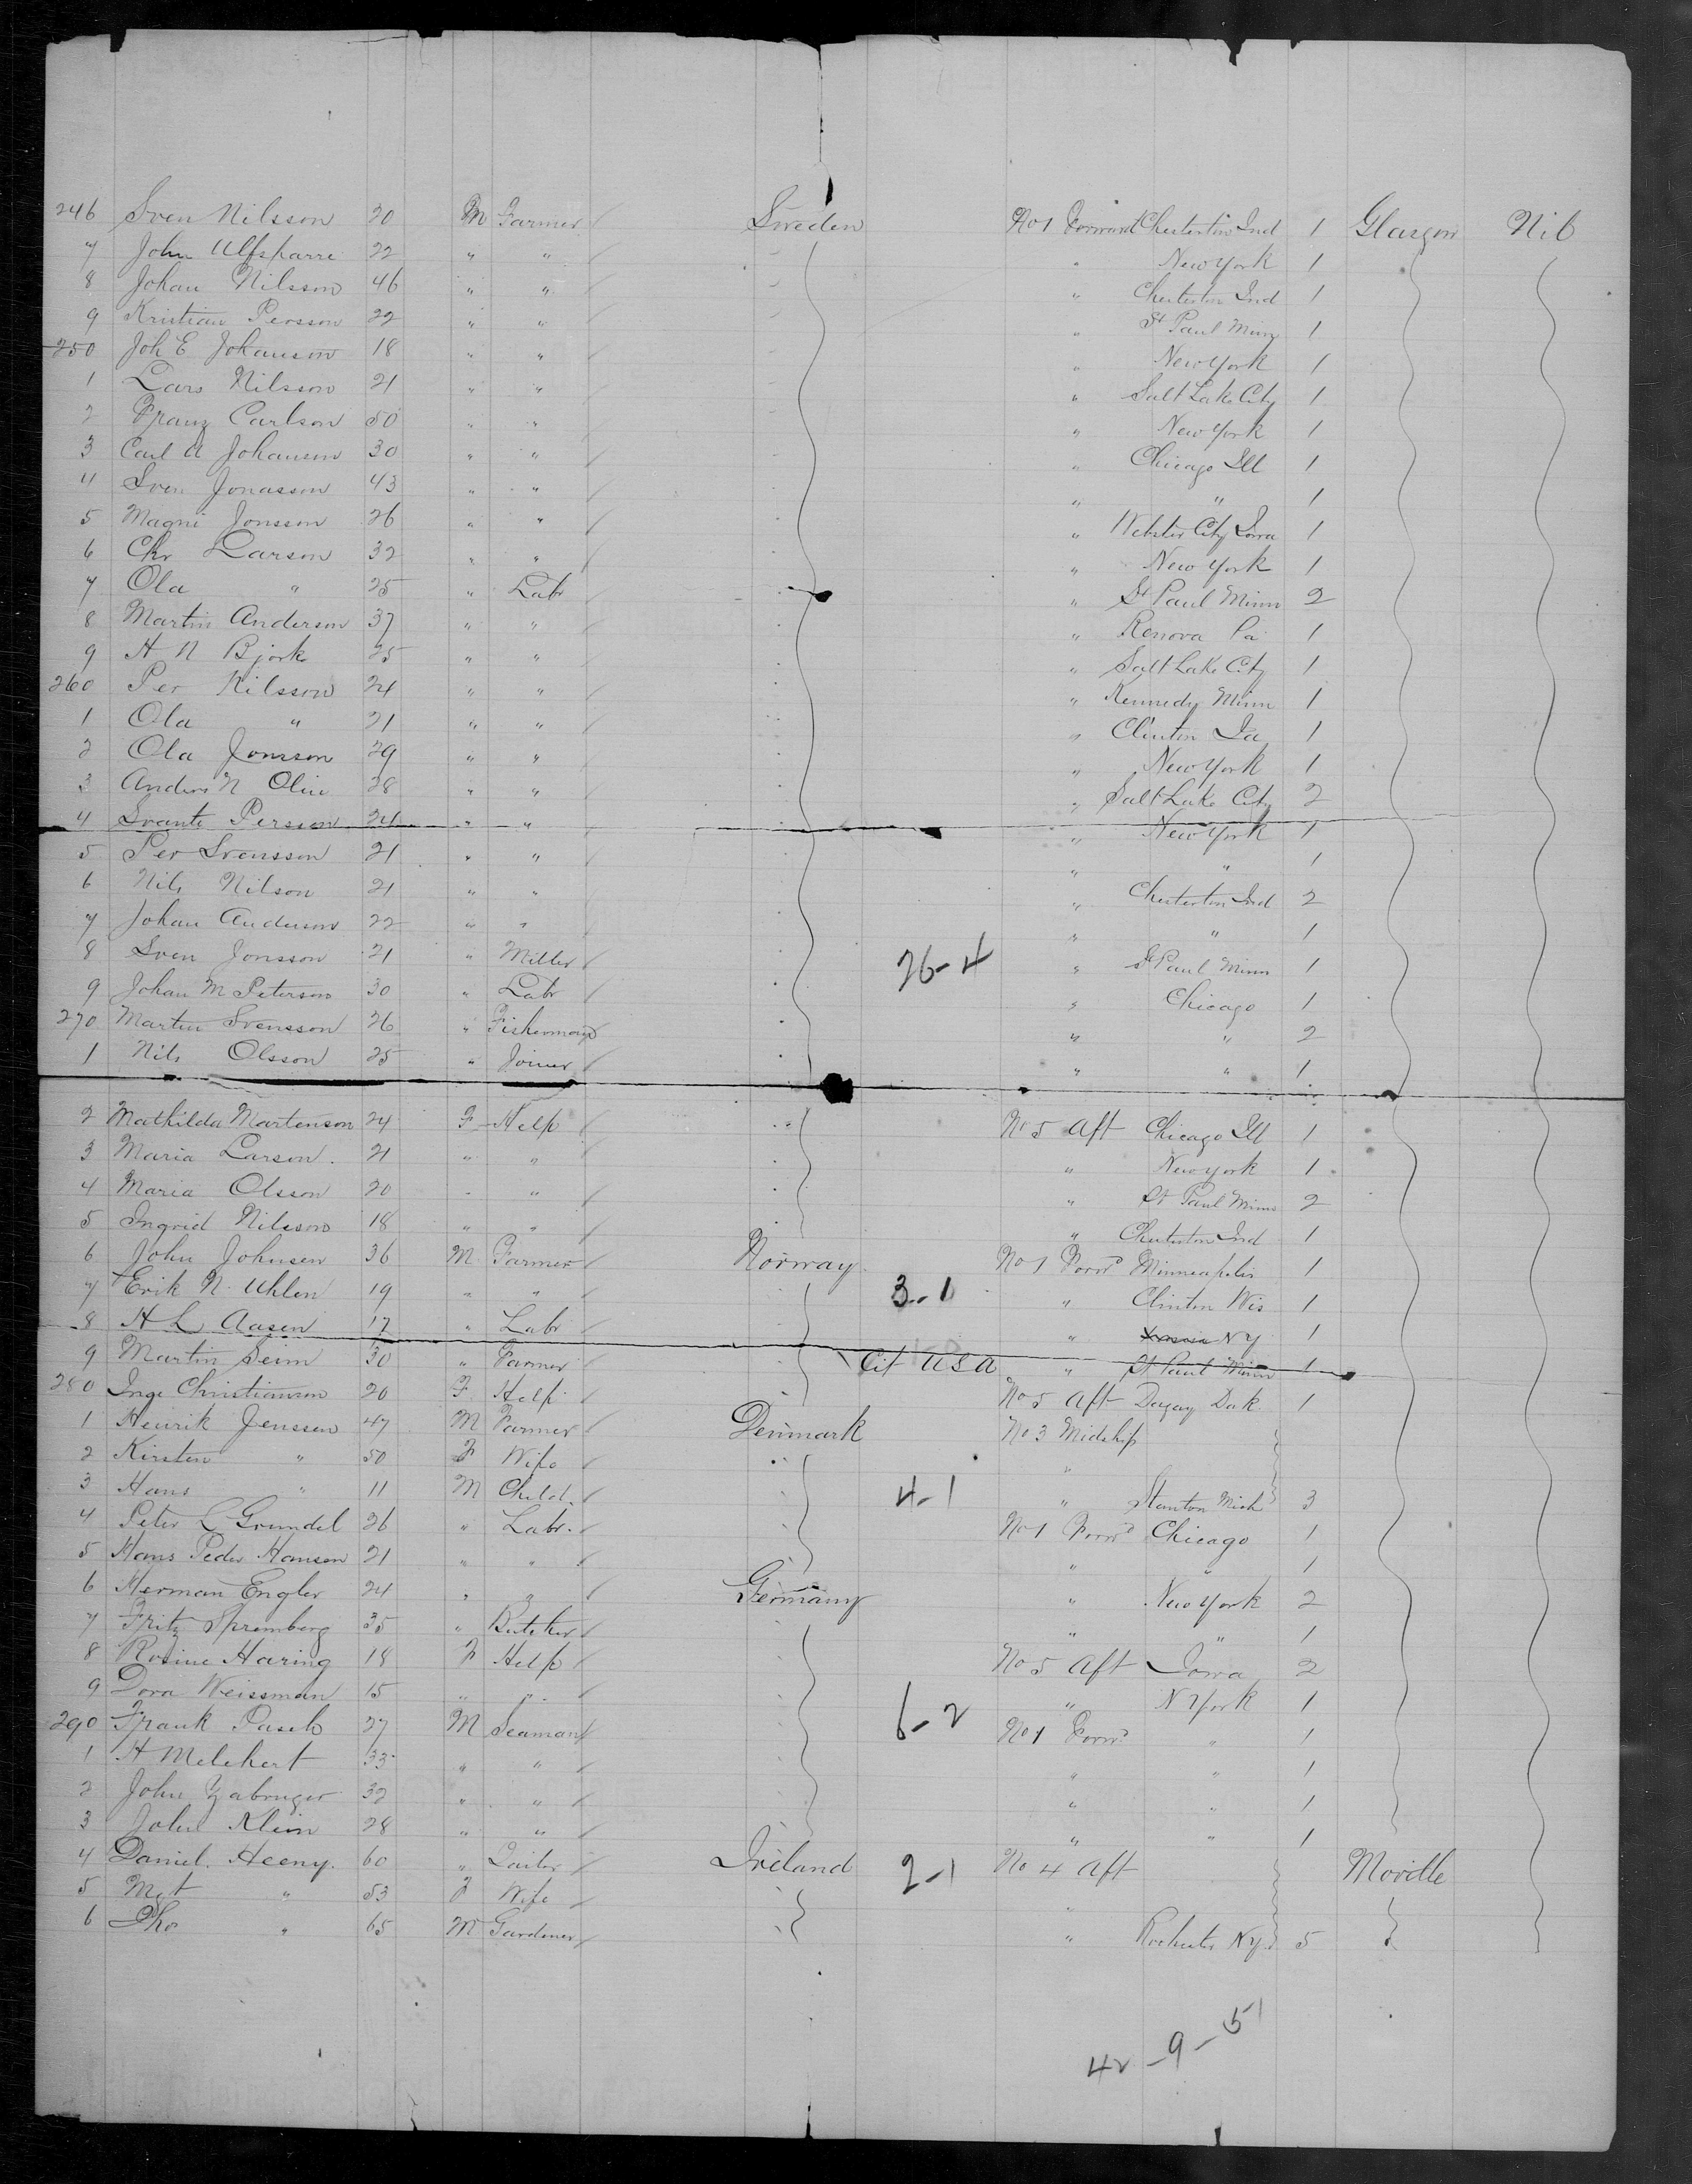 246 Sven Nilsson 20 M Farmer Sweden No 1 Forward Chesterton Ind 1 Glasgow Nil
7 John Ulfsparre 22 " " " New York 1
8 Johan Nilsson 46 " " " Chesterton Ind 1
9 Kristian Persson 22 " " " St Paul Minn 1
250 Joh E Johanson 18 " " " New York 1
1 Lars Nilsson 21 " " " Salt Lake City 1
2 Franz Carlson 50 " " " New York 1
3 Carl A Johanson 30 " " " Chicago Ill 1
4 Sven Jonasson 43 " " " " 1
5 Magni Jonsson 26 " " " Webster City Iowa 1
6 Chr Larson 32 " " " New York 1
7 Ola " 25 " Labr " St Paul Minn 2
8 Martin Anderson 37 " " " Renova Pa 1
9 A N Bjork 25 " " " Salt Lake City 1
260 Per Nilsson 24 " " " Kennedy Minn 1
1 Ola " 21 " " " Clinton Ia 1
2 Ola Jonsson 29 " " " New York 1
3 Anders N Olin 28 " " " Salt Lake City 2
4 Svante Persson 24 " " " New York 1
5 Per Svensson 21 " " " " 1
6 Nils Nilson 21 " " " Chesterton Ind 2
7 Johan Anderson 22 " " " " 1
8 Sven Jonsson 21 " Miller 26-4 " St Paul Minn 1
9 Johan M Peterson 30 " Labr " Chicago 1
270 Martin Svensson 26 " Fisherman " " 2
1 Nils Olsson 25 " Joiner " " 1
2 Mathilda Martenson 24 F Help No 5 Aft Chicago Ill 1
3 Maria Larson 21 " " " New york 1
4 Maria Olsson 20 " " " St Paul Minn 2
5 Ingrid Nilsson 18 " " " Chesterton Ind 1
6 John Johnsen 36 M Farmer Norway No 1 Forwd Minneapolis 1
7 Erik N Uhlen 19 " " 3-1 " Clinton Wis 1
8 H L Aasen 17 " Labr " N Y 1
9 Martin Seim 30 " Farmer Cit USA " St Paul Minn 1
280 Inge Christianson 20 F Help No 5 Aft Dak 1
1 Henrik Jenssen 47 M Farmer Denmark No 3 Midship
2 Kirsten " 50 F Wife "
3 Hans " 11 M Child 4-1 " Stanton Mich 3
4 Peter L Grundel 26 " Labr. No 1 Forwd Chicago 1
5 Hans Peder Hansen 21 " " " " 1
6 Herman Engler 24 " " Germany " New York 2
7 Fritz Spremberg 35 " Butcher " " 1
8 Rosine Haring 18 F Help No 5 Aft Iowa 2
9 Dora Weissman 15 " " " N York 1
290 Frank Pasch 27 M Seaman 6-2 No 1 Forwd " 1
1 H Melchert 33 " " " " 1
2 John Zabruger 32 " " " " 1
3 John Klein 28 " " " " 1
4 Daniel Heeny 60 " Tailor Ireland 2-1 No 4 Aft Moville
5 Mgt " 53 F Wife "
6 Tho " 65 M Gardener " Rochester N Y 5
42-9-51